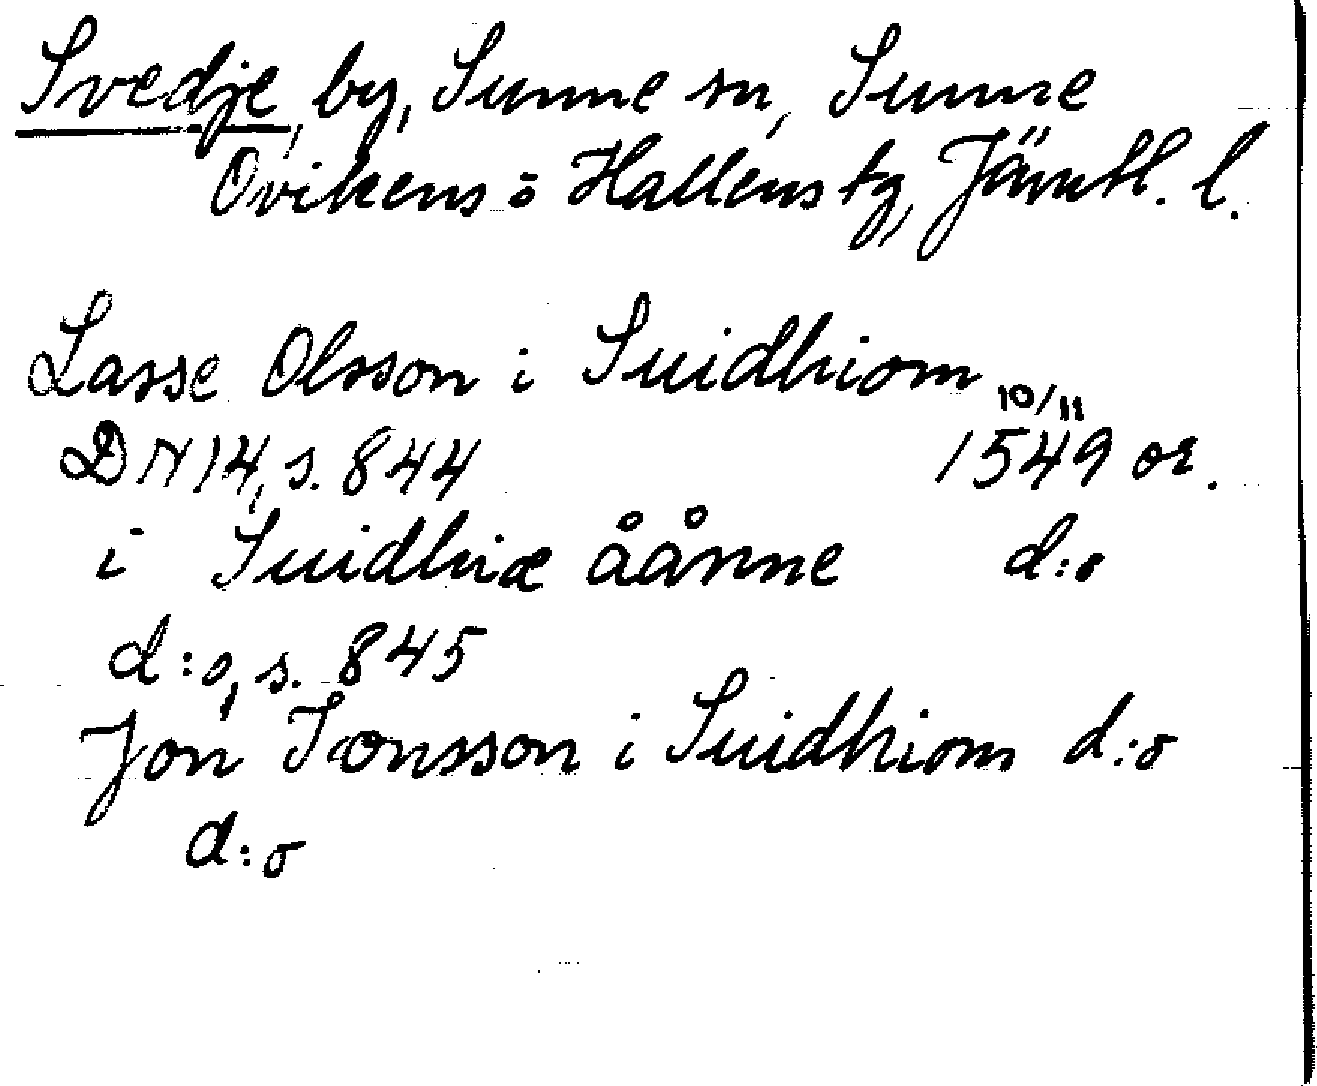 Svedje, by, Sunne sn, Sunne
Ovikens o Hallens tg, Jämtl. l.
Lasse Olsson i Suidhiom
10/11
DN 14, s. 844 1549 or.
i Suidhiæ åånne d:o
d:o, s. 845
Jon Jonsson i Suidhiom d:o
d:o